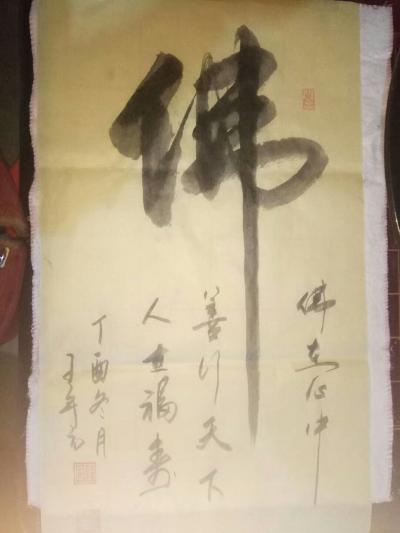 佛
佛在心中
善行天下
人世福寿
丁酉冬月